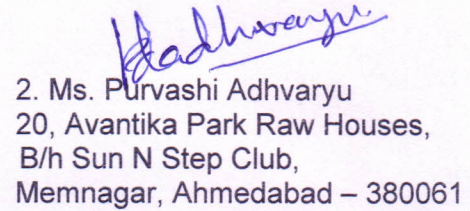 2. Ms. Purvashi Adhvaryu
20, Avantika Park Raw Houses,
B/h Sun N Step Club,
Memnagar, Ahmedabad – 380061